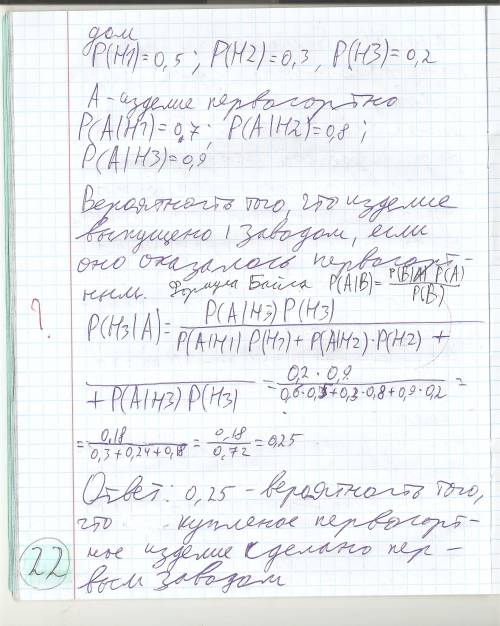 дом
P(H1)=0,5; P(H2)=0,3, P(H3)=0,2
A-изделие первосортно
P(A|H1)=0,7; P(A|H2)=0,8;
P(A|H3)=0,9
Вероятность того, что изделие
выпущено 1 заводом, если
оно оказалось первосорт-
ным. Формула Байса P(A|B)=P(B|A) P(A)/P(B)
?
P(H3|A)=P(A|H3) P(H3)/P(A|H1) P(H1)+P(A|H2)·P(H2) +
+P(A|H3) P(H3) = 0,2·0,9/0,6·0,5+0,3·0,8+0,9·0,2 =
= 0,18/0,3+0,24+0,18 = 0,18/0,72 = 0,25
Ответ: 0,25 - вероятность того,
что купленое первосорт-
ное изделие сделано пер-
вым заводом
22